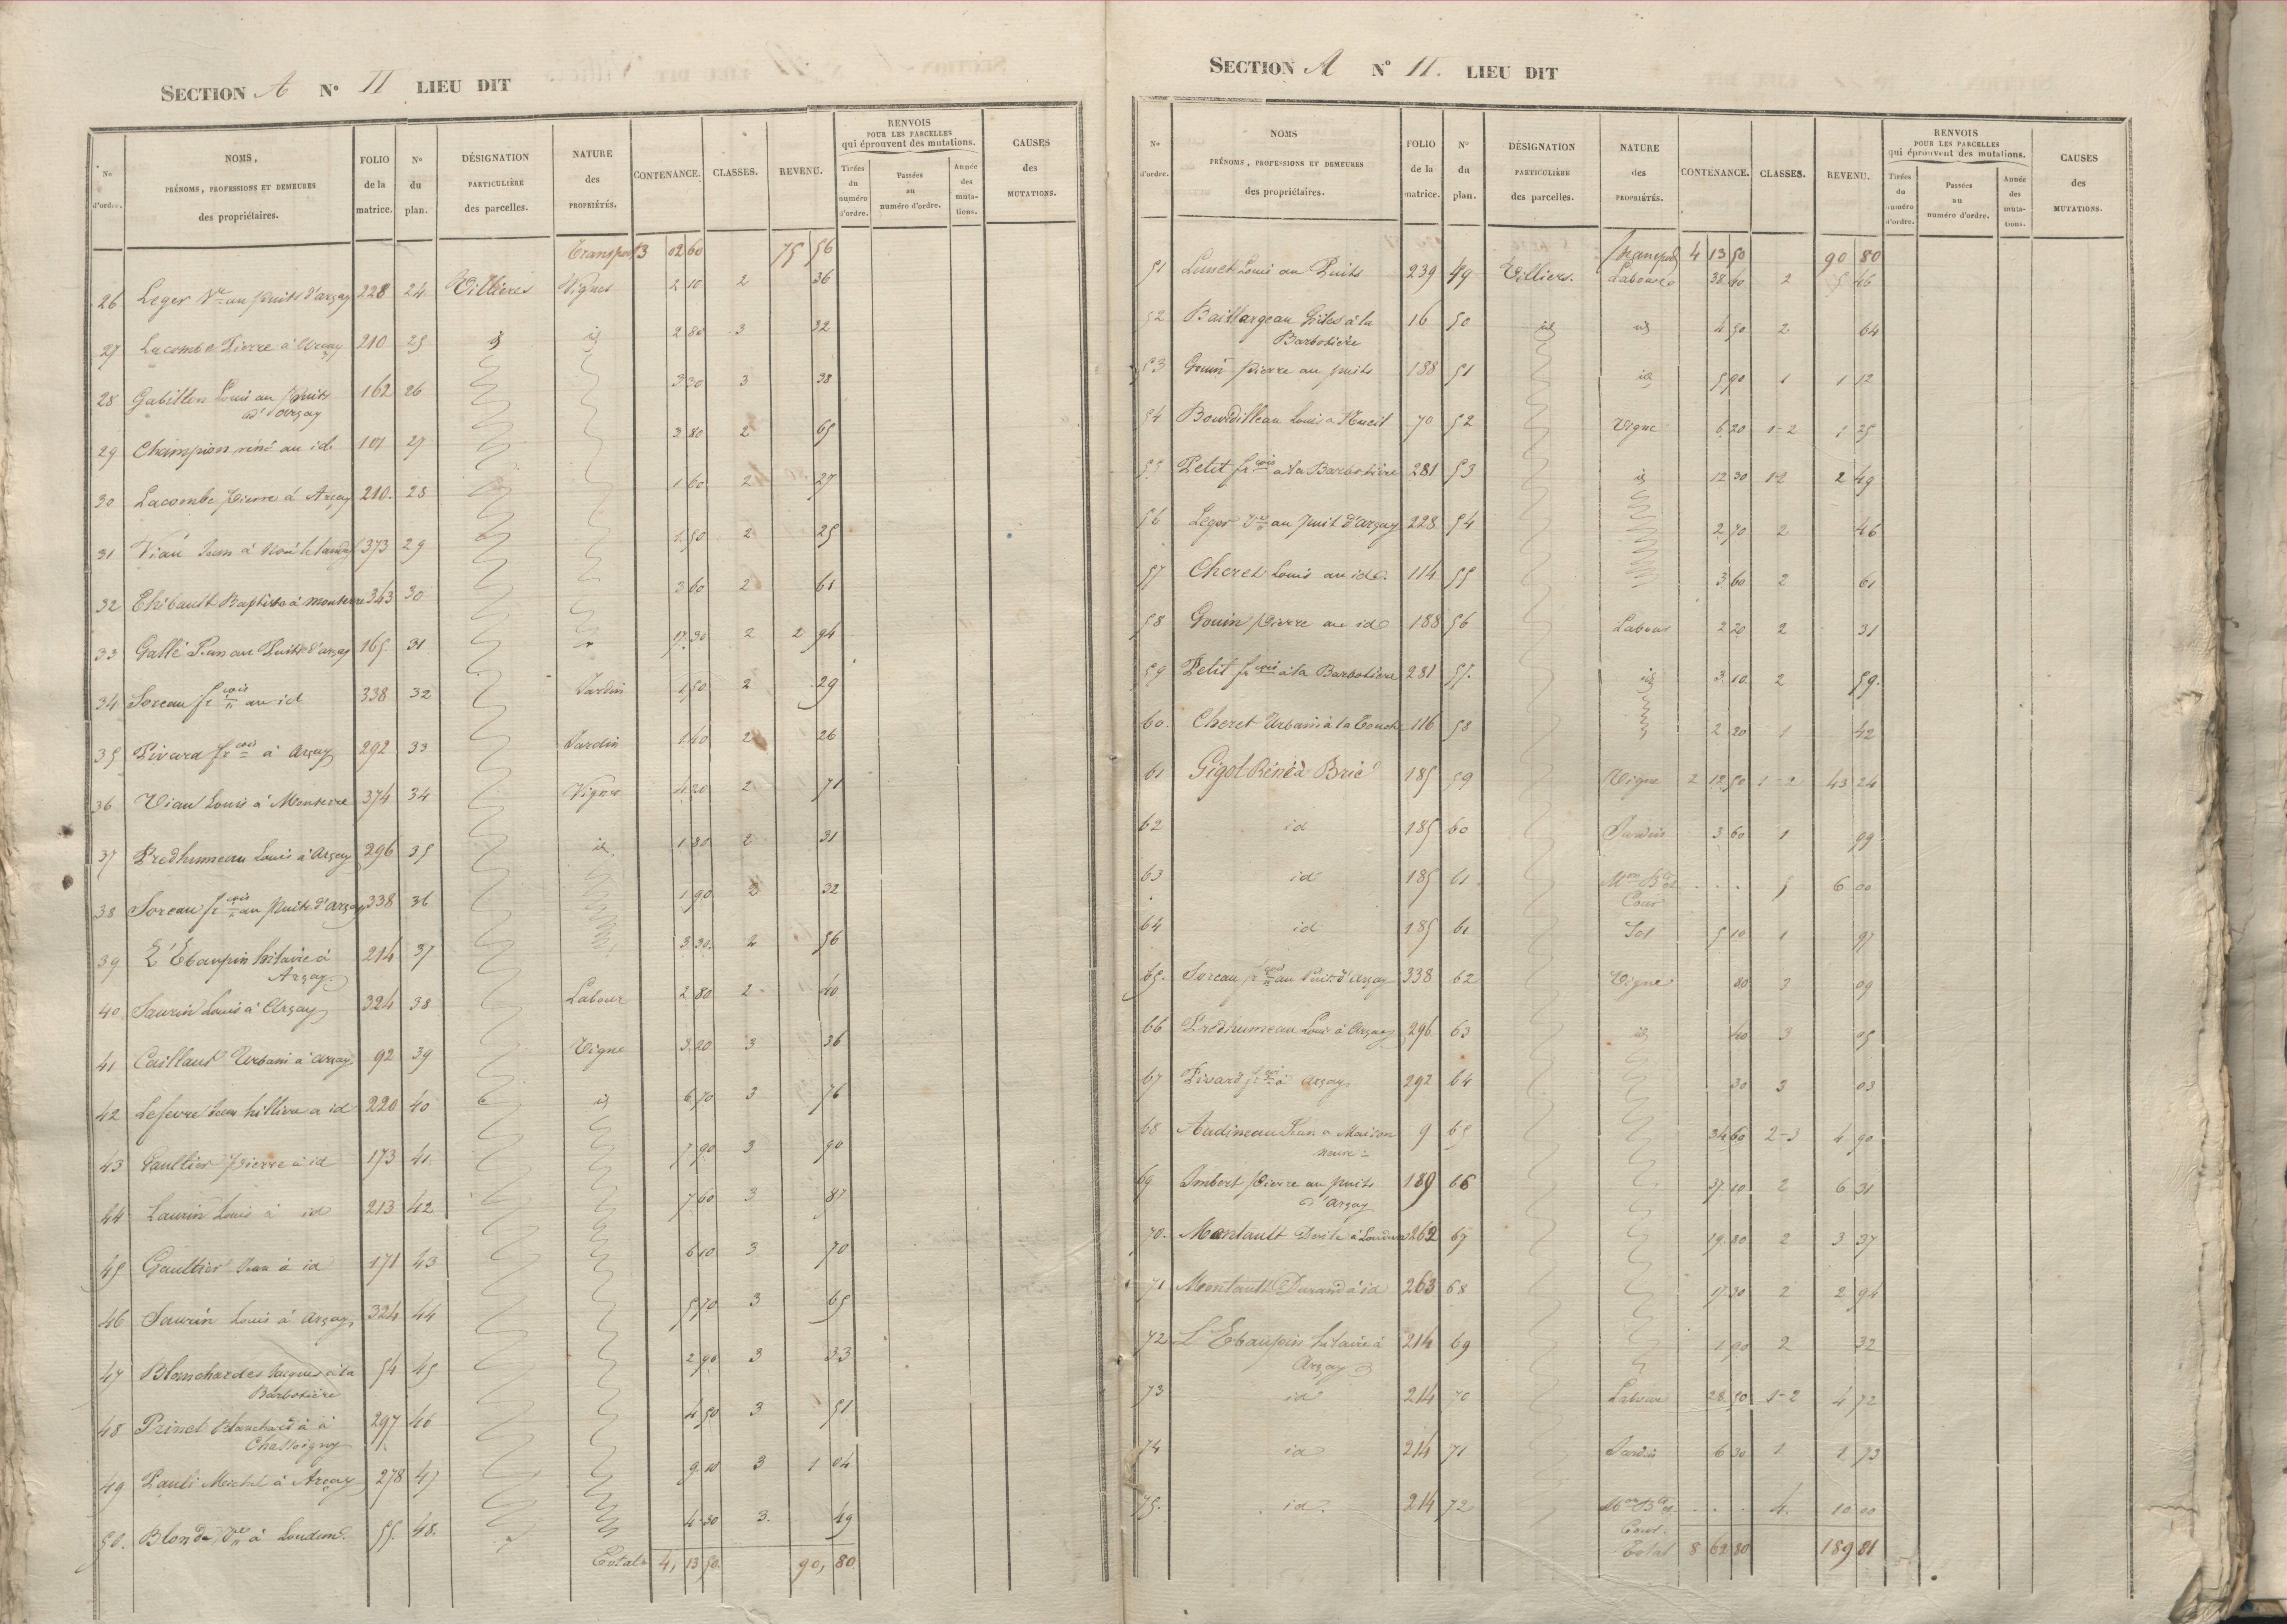 SECTION A N° 11 LIEU DIT
N° d'ordre. NOMS, PRÉNOMS, PROFESSIONS ET DEMEURES des propriétaires. FOLIO de la matrice. N° du plan. DÉSIGNATION PARTICULIÈRE des parcelles. NATURE des PROPRIÉTÉS. CONTENANCE. CLASSES. REVENU. RENVOIS POUR LES PARCELLES qui éprouvent des mutations. Tirées du numéro d'ordre. Passées au numéro d'ordre. Année des mutations. CAUSES des MUTATIONS.
Transport 3 02 60 75 56
26 Leger Ve au puits d'arçay 228 24 Villiers Vignes 2 10 2 36
27 Lacombe Pierre à Arçay 210 25 id id 2 80 3 32
28 Gabillon Louis au puits 162 26 3 30 3 38
d'Arçay
29 Champion réné au id 101 27 3 80 2 65
30 Lacombe Pierre à Arçay 210 28 1 60 2 27
31 Viau Jean à 373 29 1 50 2 25
32 Thibault Baptiste à monterre 343 30 3 60 2 61
33 Gallé Jean au Puits d'arçay 165 31 17 30 2 2 94
34 Soreau frçois au id 338 32 Jardin 1 50 2 29
35 Pivard frçois à Arçay 292 33 Jardin 1 40 2 26
36 Viau Louis à Monterre 374 34 Vignes 4 20 2 71
37 Predhumeau Louis à Arçay 296 35 id 1 80 2 31
38 Soreau frçois au Puits d'arçay 338 36 1 90 2 32
39 L'Ebaupin hilaire à 214 37 3 30 2 56
Arçay
40 Saurin Louis à Arçay 324 38 Labour 2 80 2 40
41 Caillaud Urbain à arçay 92 39 Vigne 3 20 3 36
42 Lefevre Jean hillive a id 220 40 id 6 70 3 76
43 Gaultier Pierre à id 173 41 7 90 3 90
44 Laurin Louis à id 213 42 7 60 3 87
45 Gaultier Jean à id 171 43 6 10 3 70
46 Saurin Louis à Arçay 324 44 5 70 3 65
47 Blanchardes Jacques à la 54 45 2 90 3 33
Barbotiere
48 Prinet Blanchard à 297 46 4 50 3 51
49 Pauli Michel à Arçay 278 47 9 10 3 1 04
50 Blonde Ve à Loudun 55 48 4 30 3 49
Total 4, 13 50 90, 80
SECTION A N° 11. LIEU DIT
N° d'ordre. NOMS PRÉNOMS, PROFESSIONS ET DEMEURES des propriétaires. FOLIO de la matrice. N° du plan. DÉSIGNATION PARTICULIÈRE des parcelles. NATURE des PROPRIÉTÉS. CONTENANCE. CLASSES. REVENU. RENVOIS POUR LES PARCELLES qui éprouvent des mutations. Tirées du numéro d'ordre. Passées au numéro d'ordre. Année des mutations. CAUSES des MUTATIONS.
Transport 4 13 50 90 80
51 Lunet Louis au Puits 239 49 Villiers. Labour 38 40 2 5 46
52 Baillargeau Gilles à la 16 50 id id 4 50 2 64
Barbotiere
53 Gouin Pierre au puits 188 51 id 5 90 1 1 12
54 Bourdilleau Louis a Nueil 70 52 Vigne 6 20 1-2 1 25
55 Petit frçois à la Barbotière 281 53 id 12 30 1-2 2 49
56 Leger Ve au Puit d'arçay 228 54 2 70 2 46
57 Cheret Louis au id. 114 55 3 60 2 61
58 Gouin Pierre au id 188 56 Labour 2 20 2 31
59 Petit frçois à la Barbotiere 281 57 id 3 10 2 59
60 Cheret Urbain à la Touche 116 58 2 20 1 42
61 Gigot Réné à Brié 185 59 Vigne 2 12 50 1-2 43 24
62 id 185 60 Jardin 3 60 1 99
63 id 185 61 Mon Bat . . . 5 6 00
Cour
64 id 185 61 Sol 5 10 1 97
65 Soreau frçois au Puit d'Arçay 338 62 Vigne 80 3 09
66 Predhumeau Louis à Arçay 296 63 id 40 3 05
67 Pivard frçois à Arçay 292 64 30 3 03
68 Audineau Jean a Maison 9 65 34 60 2-3 4 90
neuve
69 Imbert Pierre au puits 189 66 37 10 2 6 31
d'Arçay
70 Montault à Loudun 262 67 19 80 2 3 37
71 Montault Durand à id 263 68 17 30 2 2 94
72 L'Ebaupin hilaire à 214 69 1 90 2 32
Arçay
73 id 214 70 Labour 28 50 1-2 4 72
74 id 214 71 Jardin 6 30 1 1 73
75 id 214 72 Mon Bat . . . 4 10 00
Cour
Total 8 62 80 189 81